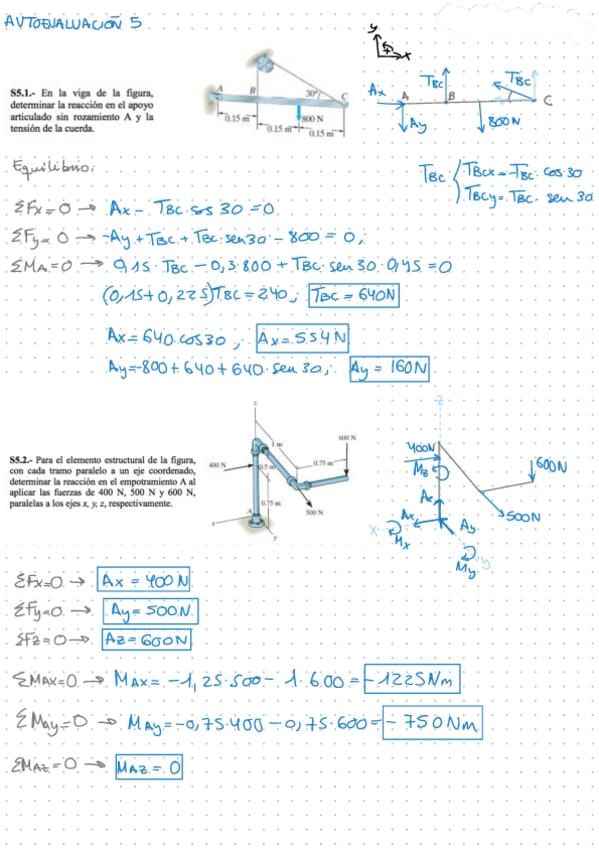 AUTOEVALUACIÓN 5
S5.1.- En la viga de la figura,
determinar la reacción en el apoyo
articulado sin rozamiento A y la
tensión de la cuerda.
A B 30° C
0.15 m 800 N
0.15 m 0.15 m
y
x
Ax A TBC B TBC C
Ay 800N
Equilibrio:
TBC { TBCx = -TBC · cos 30
TBCy = TBC · sen 30
ΣFx=0 → Ax - TBC cos 30 = 0
ΣFy=0 → -Ay + TBC + TBC · sen 30 - 800 = 0;
ΣMA=0 → 0,15 · TBC - 0,3 · 800 + TBC · sen 30 · 0,45 = 0
(0,15+0,225)TBC = 240; TBC = 640N
Ax = 640 · cos30; Ax = 554N
Ay = -800 + 640 + 640 · sen 30; Ay = 160N
S5.2.- Para el elemento estructural de la figura,
con cada tramo paralelo a un eje coordenado,
determinar la reacción en el empotramiento A al
aplicar las fuerzas de 400 N, 500 N y 600 N,
paralelas a los ejes x, y, z, respectivamente.
z
1 m 600 N
400 N 0.5 m 0.75 m
0.75 m
A 500 N
x y
z
400N
Mz 600N
500N
Ax Ay
x Mx
My y
ΣFx=0 → Ax = 400 N
ΣFy=0 → Ay = 500N
ΣFz=0 → Az = 600N
ΣMAx=0 → MAx = -1,25 · 500 - 1 · 600 = -1225Nm
ΣMAy=0 → MAy = -0,75 · 400 - 0,75 · 600 = -750Nm
ΣMAz=0 → MAz = 0